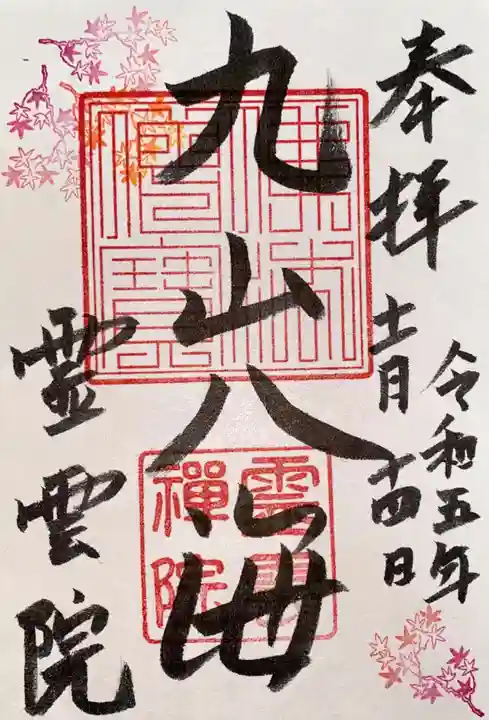 奉拝
令和五年
十一月十四日
九山八海
霊雲院
佛法
僧寶
禪院